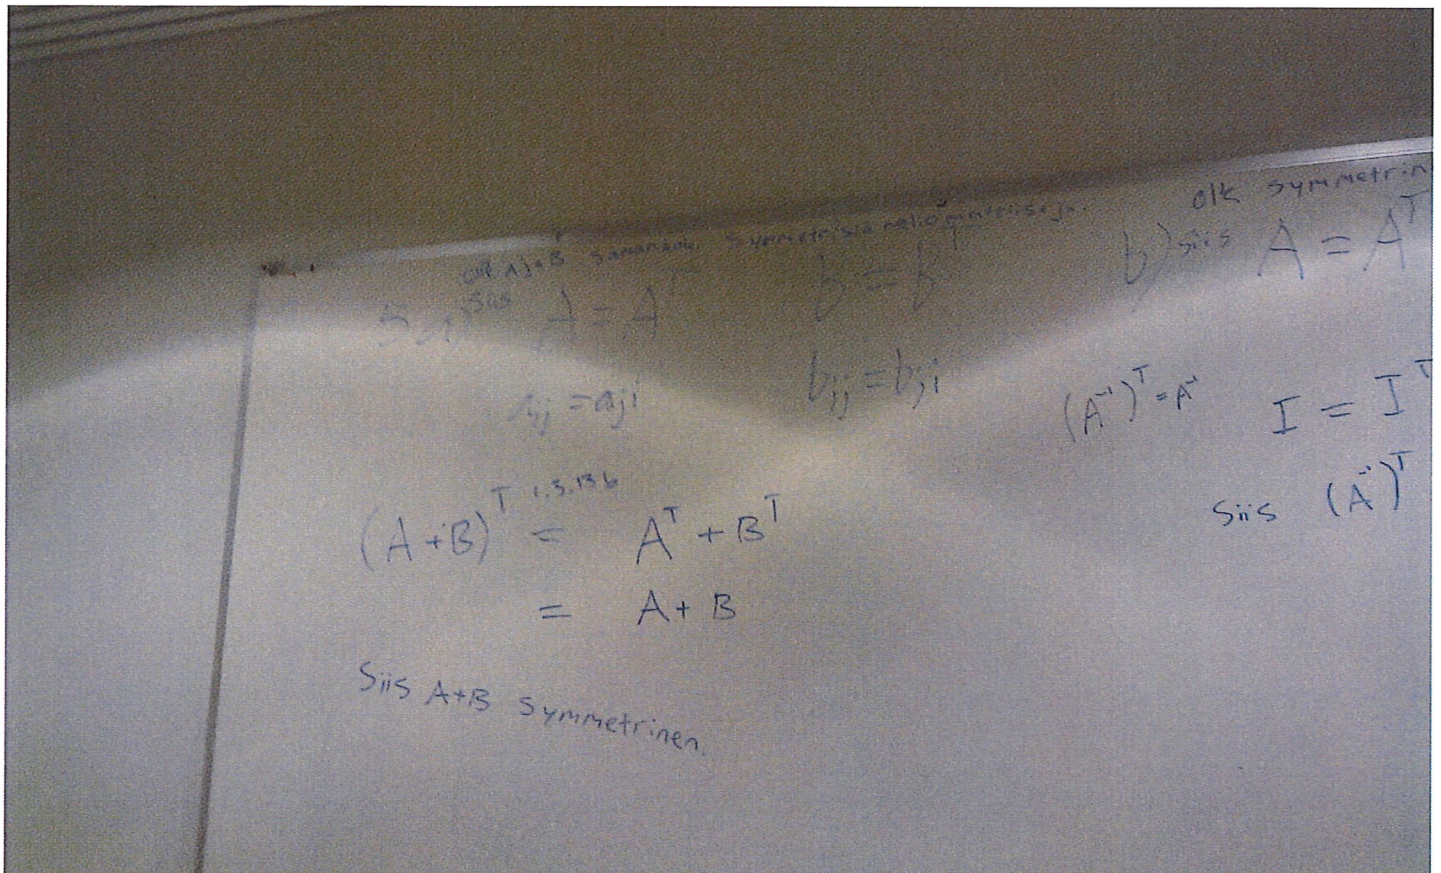 olk A ja B samankok. symmetrisiä neliömatriiseja.
5 a) siis A = Aᵀ B = Bᵀ
aij = aji bij = bji
(A+B)ᵀ 1.3.13 b = Aᵀ + Bᵀ
= A + B
Siis A+B symmetrinen.
olk symmetrin
b) siis A = Aᵀ
(A⁻¹)ᵀ = A⁻¹ I = Iᵀ
Siis (A⁻¹)ᵀ